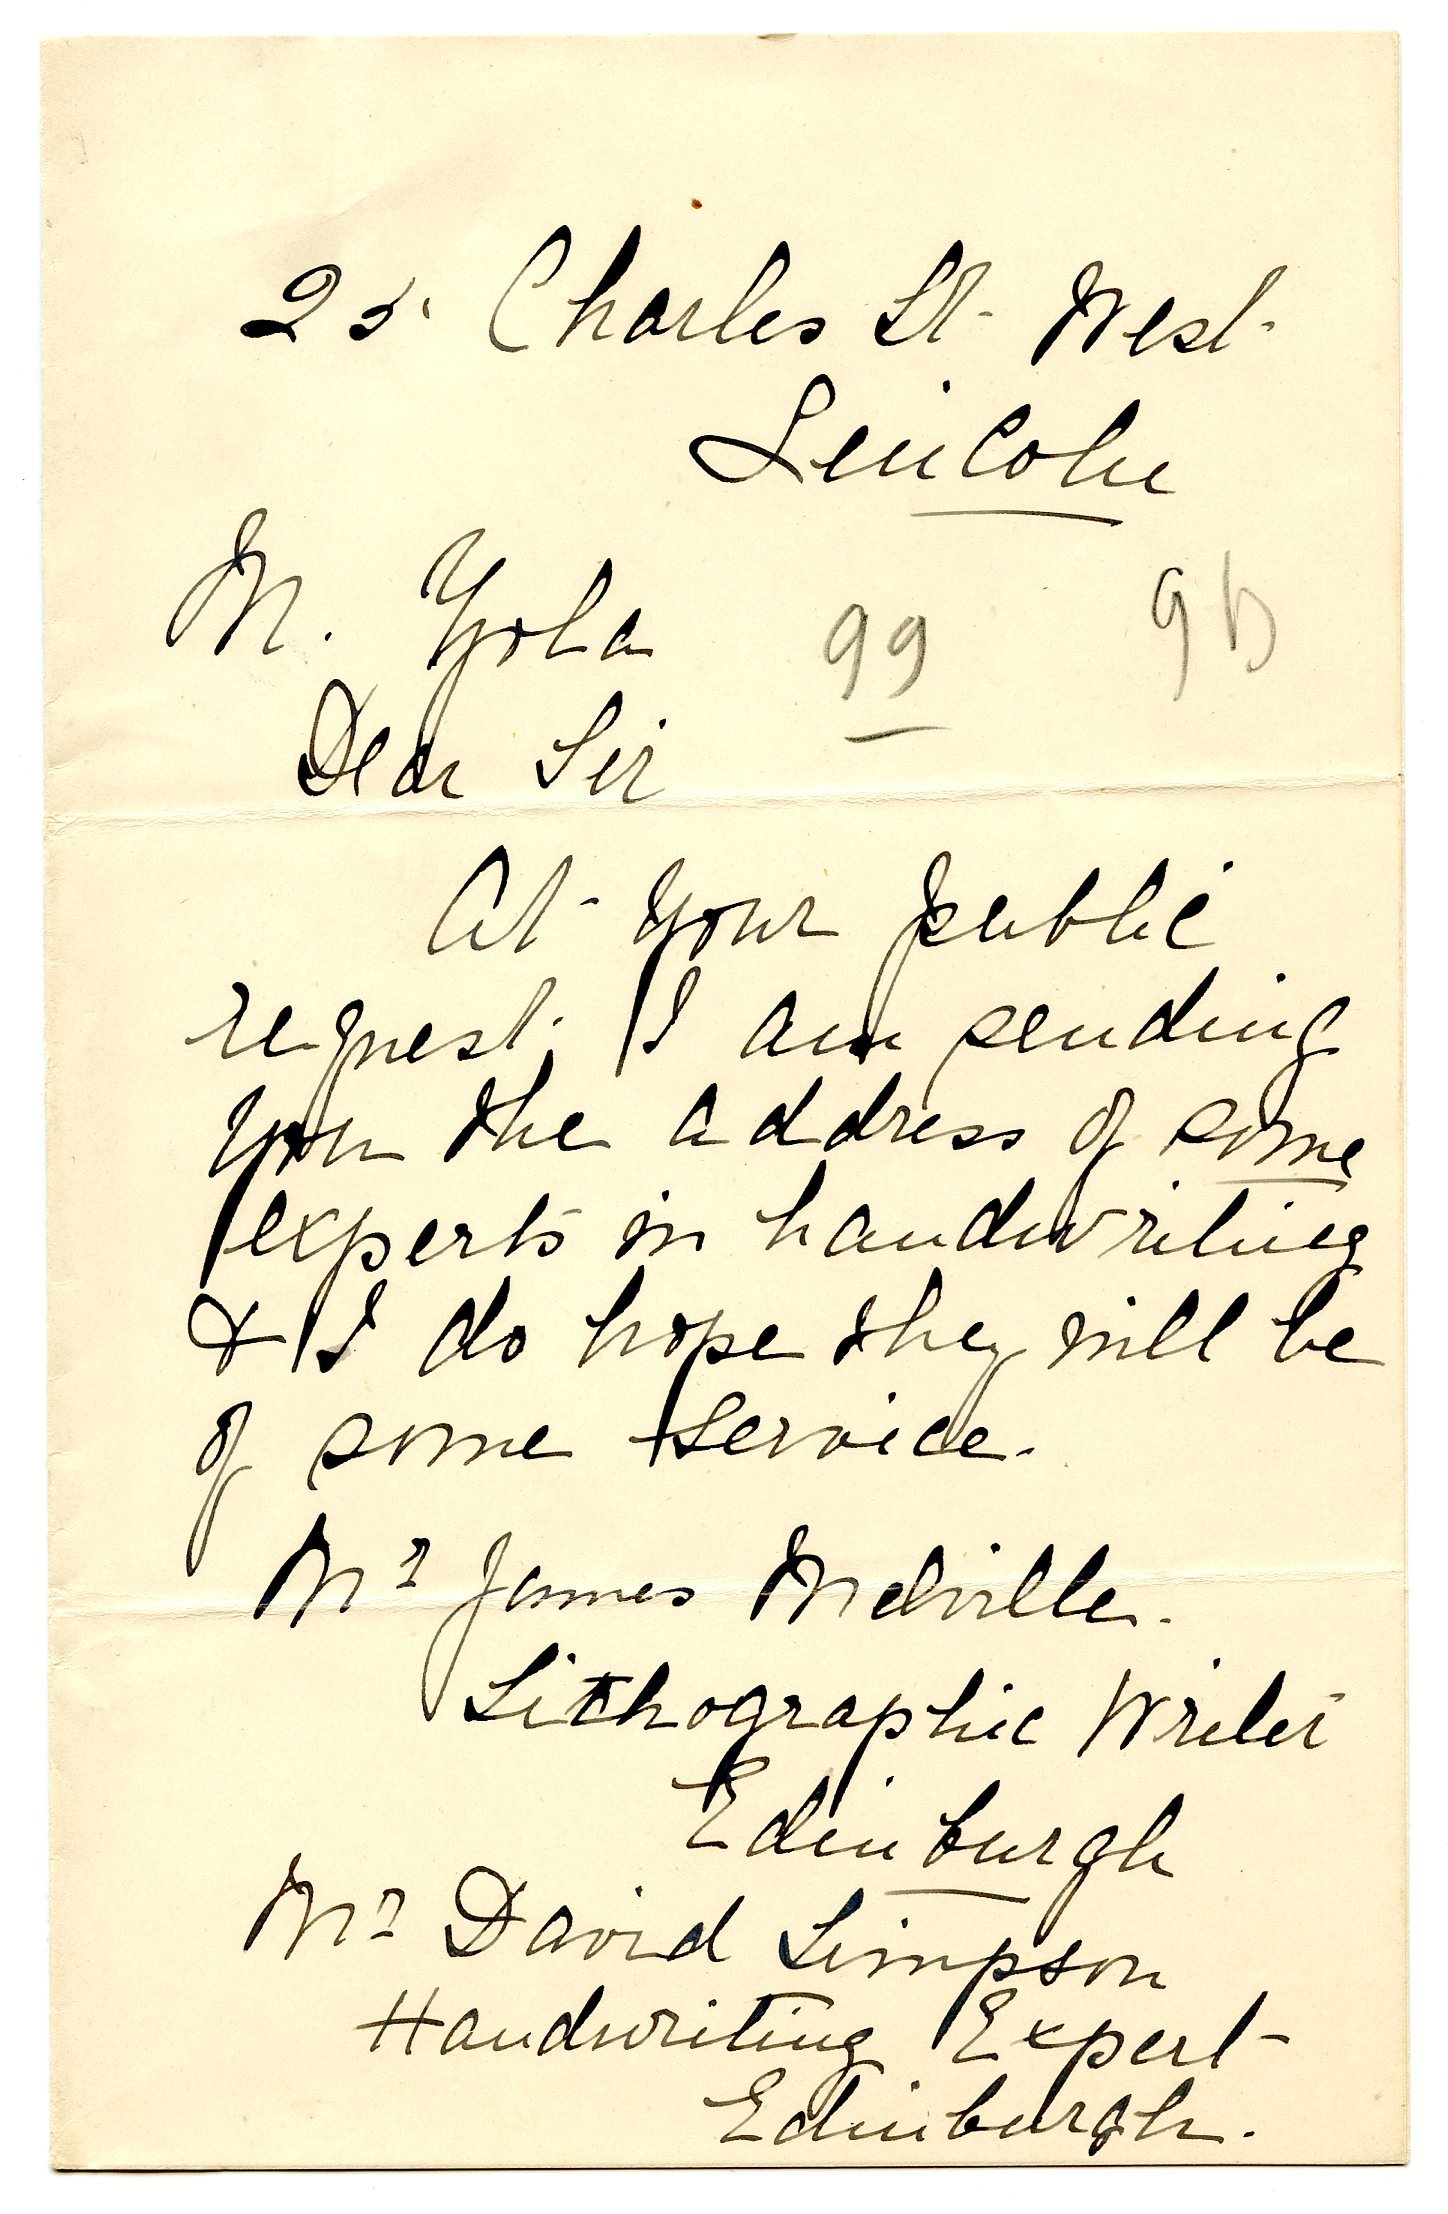 25 Charles St. West.
Lincoln
M. Zola
99 9B
Dear Sir
At your public
request I am sending
you the address of some
experts in handwriting
& I do hope they will be
of some service.
Mr James Melville.
Lithographic Writer
Edinburgh
Mr David Simpson
Handwriting Expert
Edinburgh.